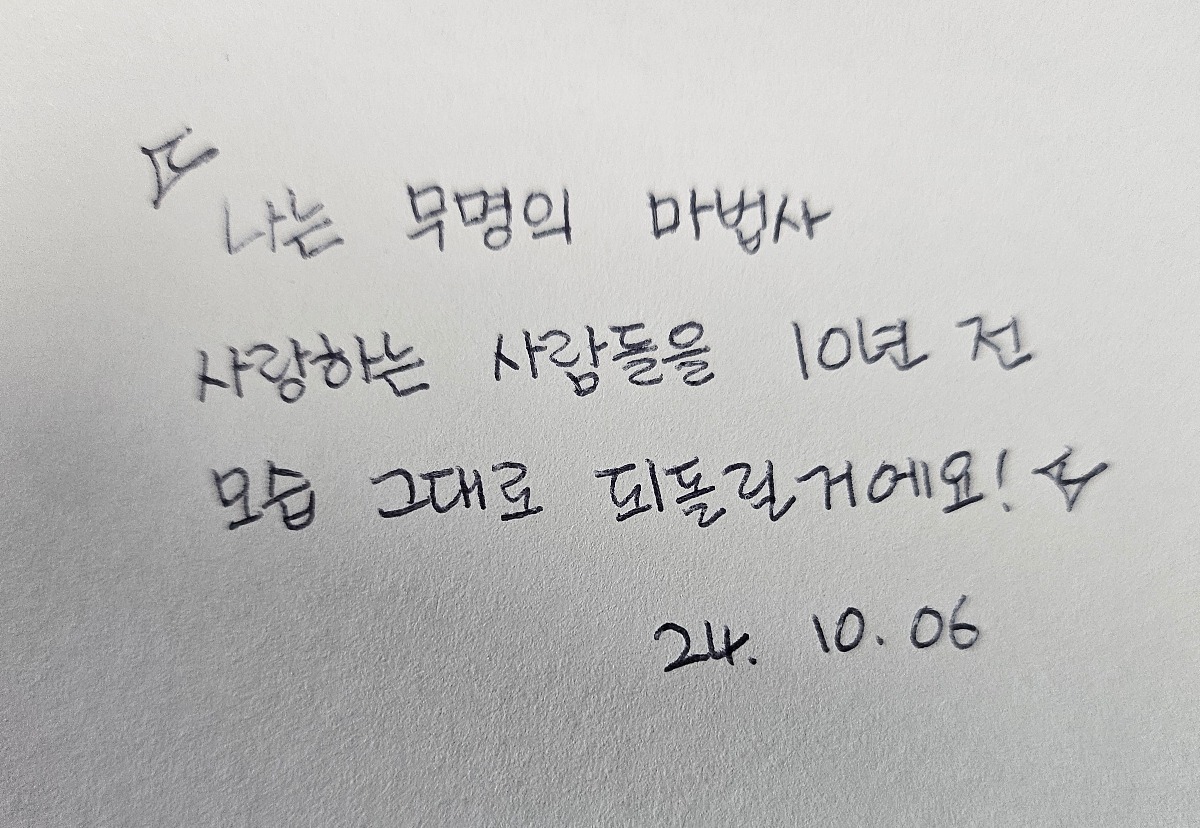 나는 무명의 마법사
사랑하는 사람들을 10년 전
모습 그대로 되돌릴거에요!
24. 10. 06